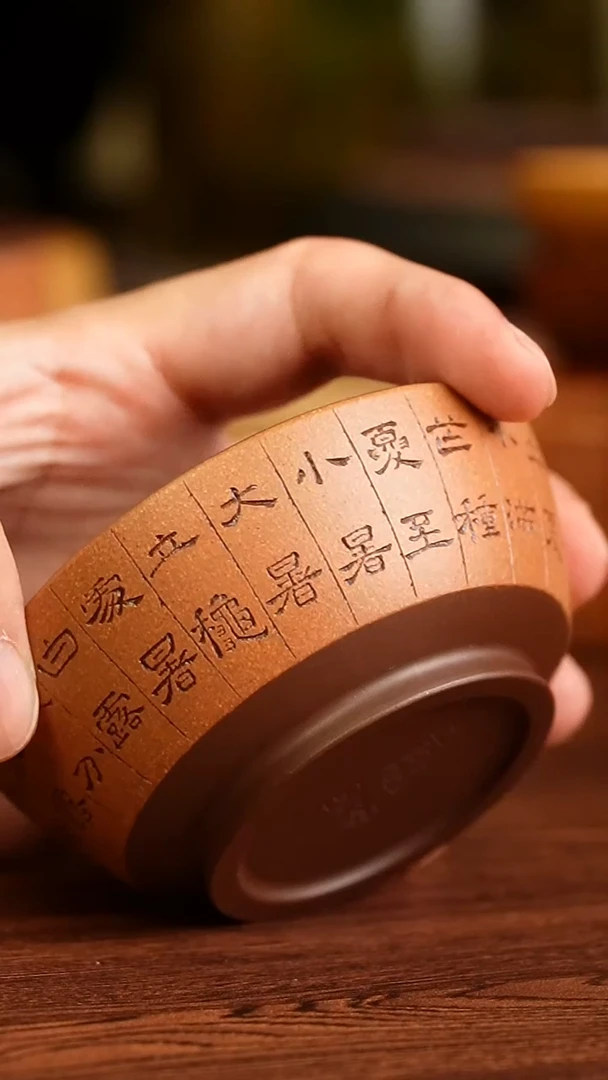 芒種
夏至
小暑
大暑
立穐
處暑
白露
分